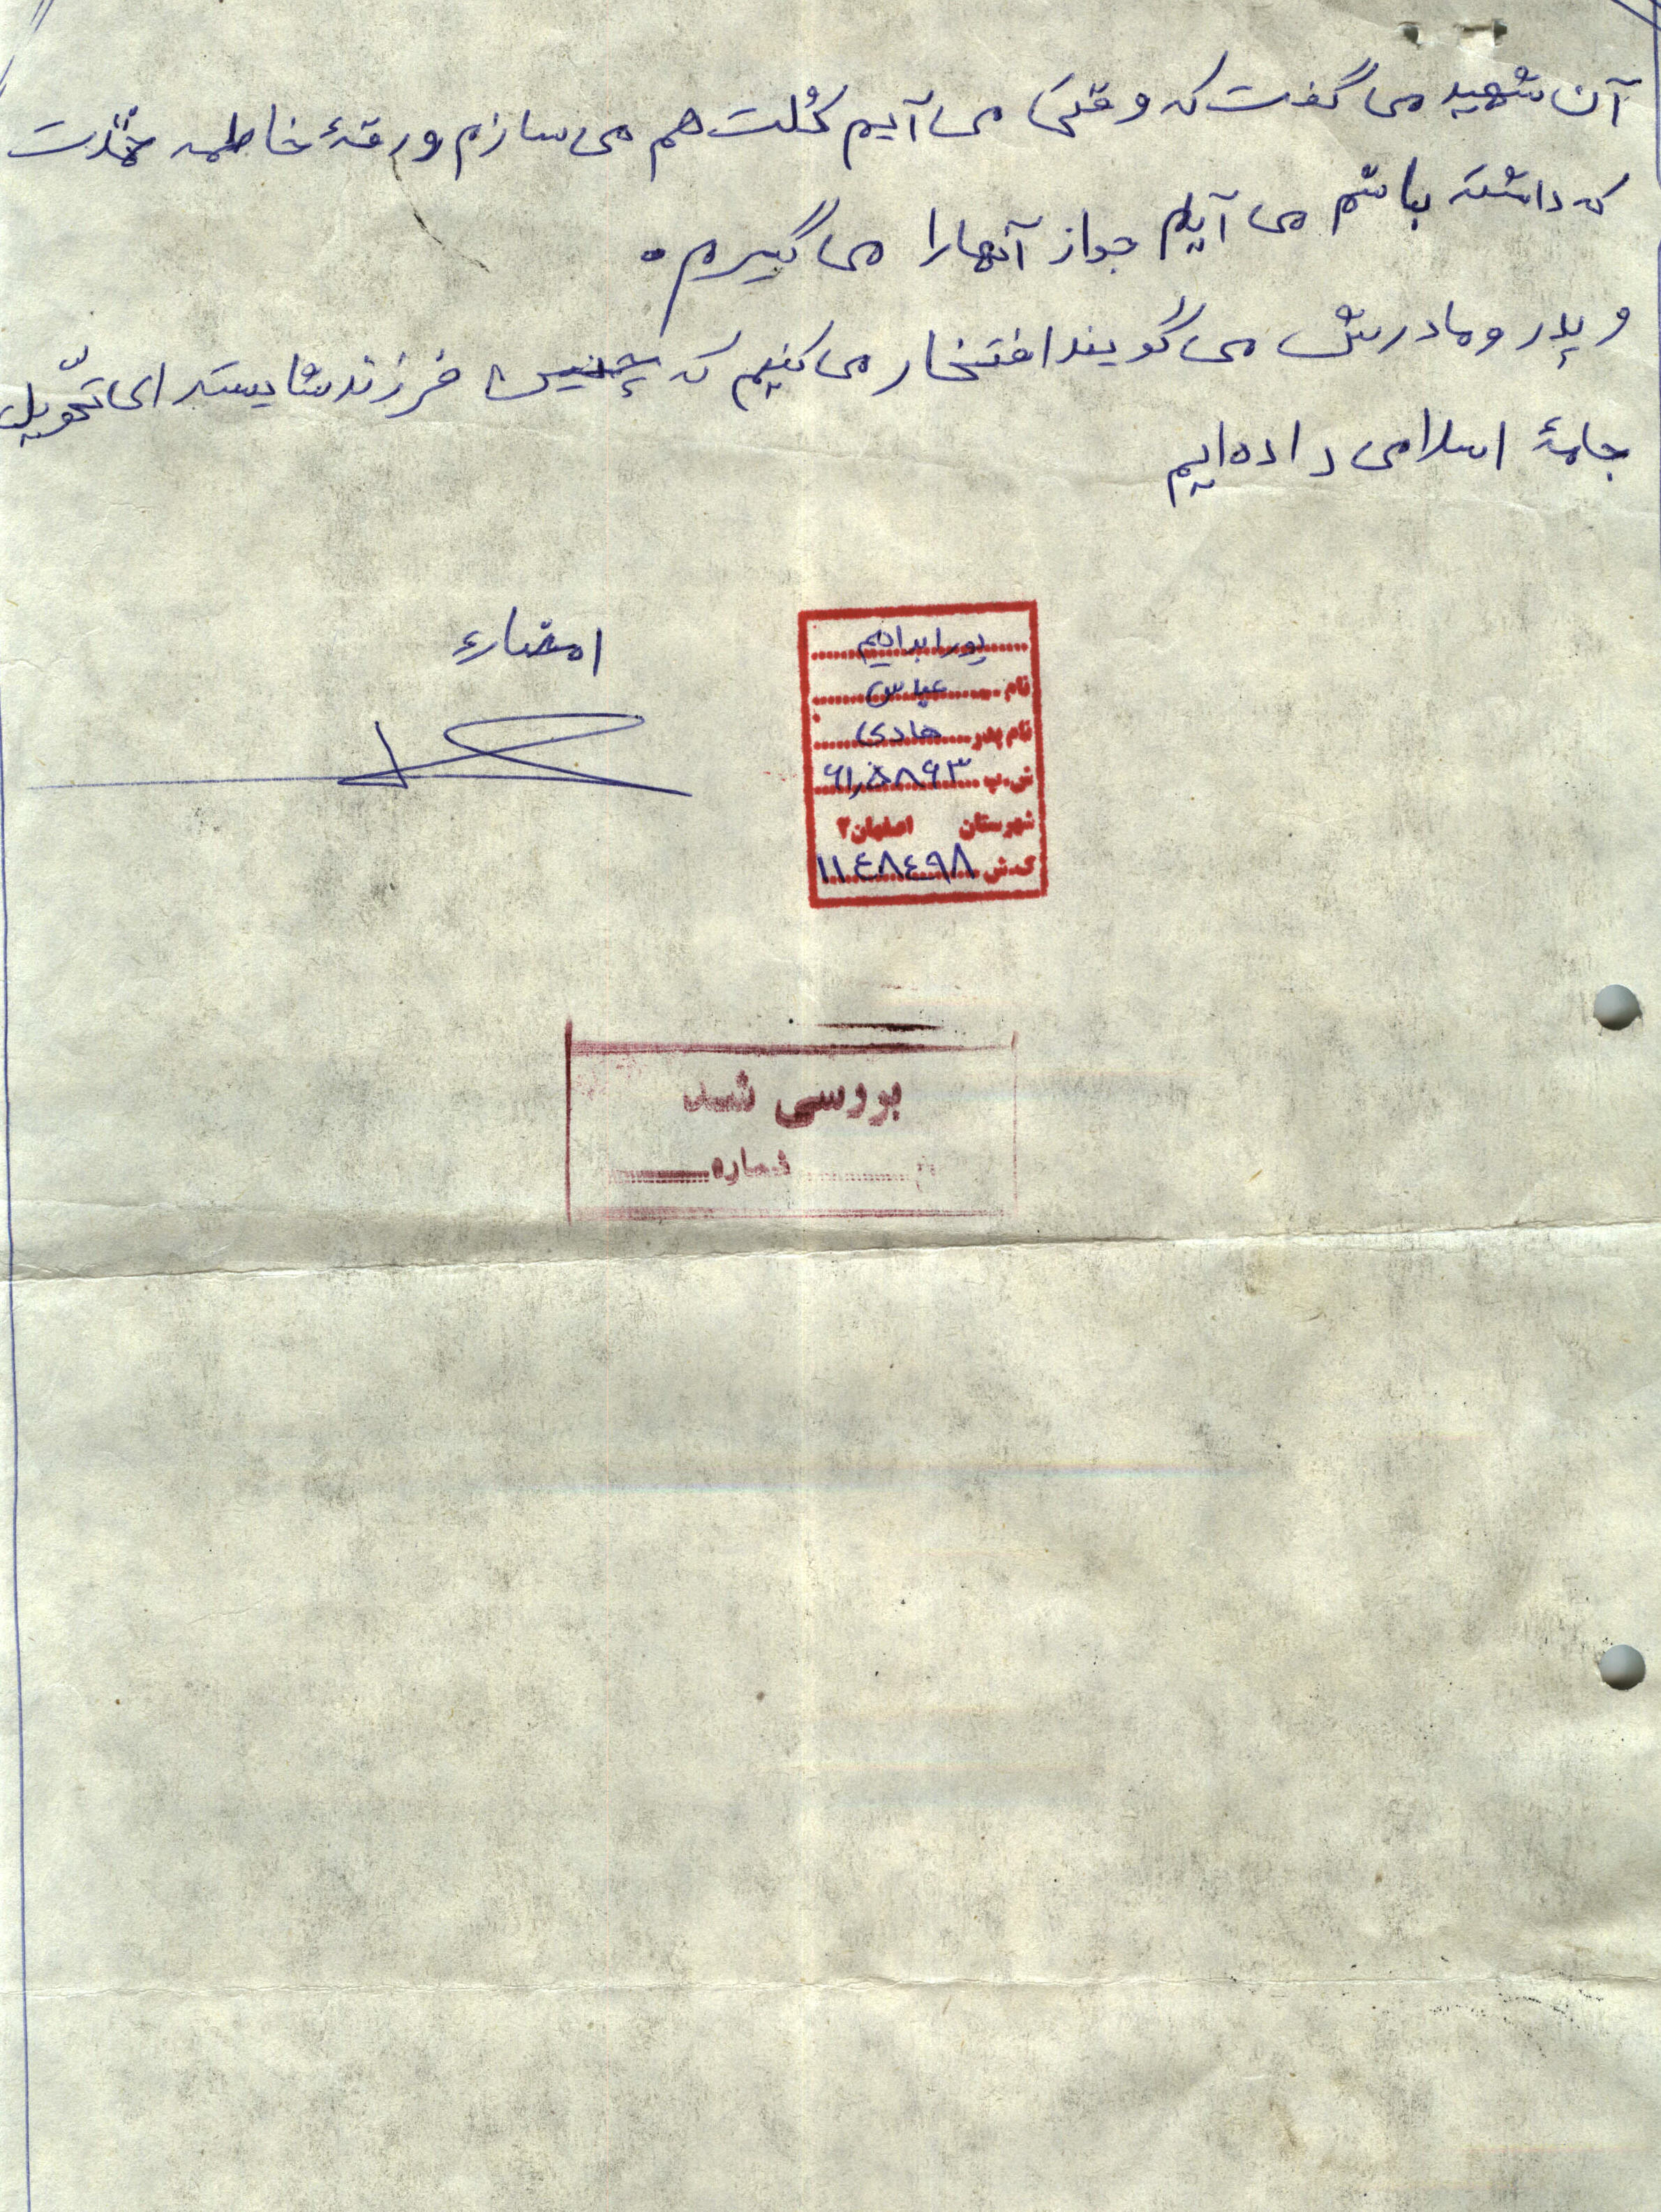 آن شهید می گفت که وقتی می آیم کُلت هم می سازم ورقهٔ خاطمه خدمت
که داشته باشم می آیم جواز آنها را می گیرم .
و پدر و مادرش می گویند افتخار می کنیم که چنین فرزند شایسته ای تحویل
جامعهٔ اسلامی داده ایم
امضاء
پورابراهیم
نام عباس
نام پدر هادی
ش.پ ۶۱٫۵۸۶۳
شهرستان اصفهان ۲
ک.ش ۱۱۴۸۴۹۸
بررسی شد
شماره